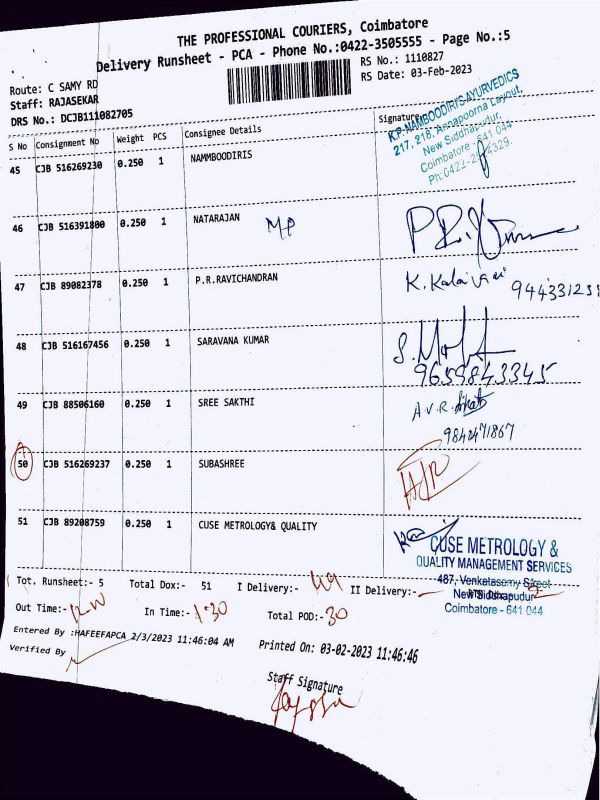 THE PROFESSIONAL COURIERS, Coimbatore
Delivery Runsheet - PCA - Phone No.:0422-3505555 - Page No.:5
Route: C SAMY RD
RS No.: 1110827
Staff: RAJASEKAR
RS Date: 03-Feb-2023
DRS No.: DCJB111082705
S No Consignment No Weight PCS Consignee Details Signature
K.P. NAMBOODIRI'S AYURVEDICS
217, 218, Annapoorna Layout,
New Siddhapudur,
Coimbatore - 641 044
45 CJB 516269230 0.250 1 NAMMBOODIRIS
46 CJB 516391800 0.250 1 NATARAJAN MP
47 CJB 89082378 0.250 1 P.R.RAVICHANDRAN K. Kalaivani
48 CJB 516167456 0.250 1 SARAVANA KUMAR
9659843345
49 CJB 88506160 0.250 1 SREE SAKTHI A.V.R.
9842471867
50 CJB 516269237 0.250 1 SUBASHREE
51 CJB 89208759 0.250 1 CUSE METROLOGY& QUALITY
CUSE METROLOGY &
QUALITY MANAGEMENT SERVICES
487, Venketasamy Street
New Siddhapudur
Coimbatore - 641 044
Tot. Runsheet:- 5 Total Dox:- 51 I Delivery:- 49 II Delivery:-
Out Time:- In Time:- 1.30 Total POD:- 30
Entered By :HAFEEFAPCA 2/3/2023 11:46:04 AM Printed On: 03-02-2023 11:46:46
Verified By
Staff Signature